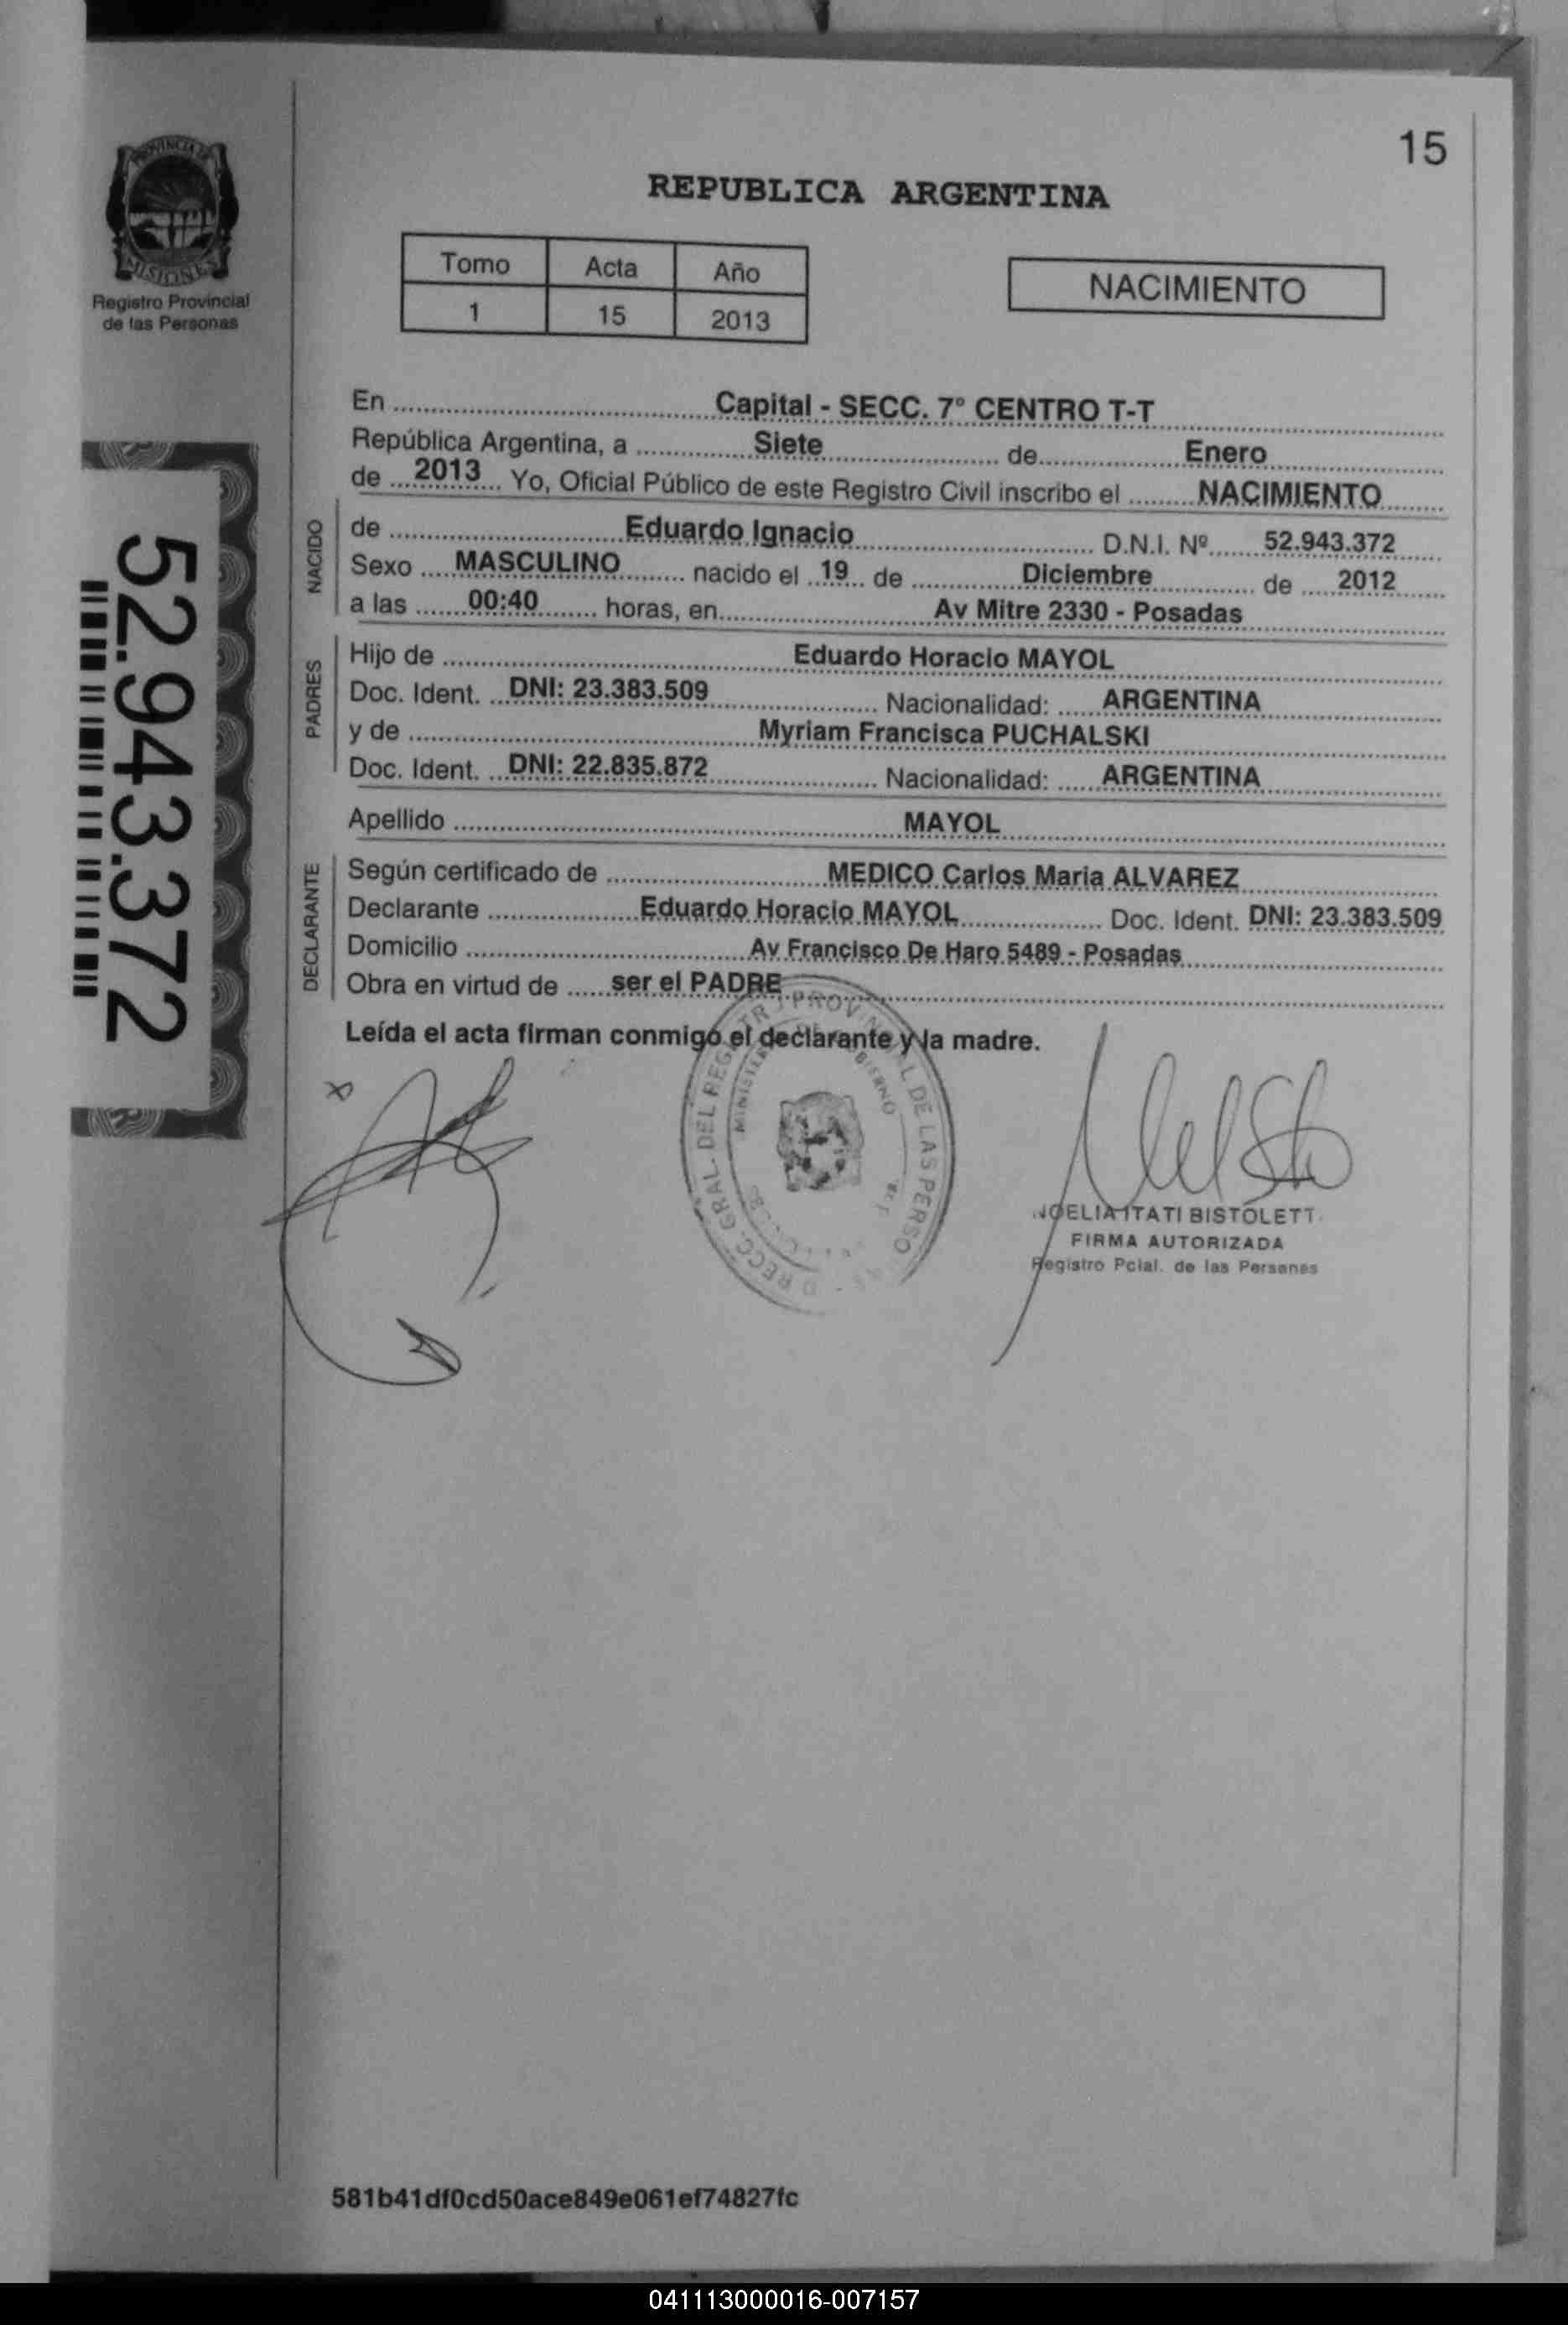 15
REPUBLICA ARGENTINA
PROVINCIA DE
MISIONES
Registro Provincial
de las Personas
Tomo Acta Año
1 15 2013
NACIMIENTO
En Capital - SECC. 7° CENTRO T-T
República Argentina, a Siete de Enero
de 2013 Yo, Oficial Público de este Registro Civil inscribo el NACIMIENTO
NACIDO
de Eduardo Ignacio D.N.I. Nº 52.943.372
Sexo MASCULINO nacido el 19 de Diciembre de 2012
a las 00:40 horas, en Av Mitre 2330 - Posadas
PADRES
Hijo de Eduardo Horacio MAYOL
Doc. Ident. DNI: 23.383.509 Nacionalidad: ARGENTINA
y de Myriam Francisca PUCHALSKI
Doc. Ident. DNI: 22.835.872 Nacionalidad: ARGENTINA
Apellido MAYOL
DECLARANTE
Según certificado de MEDICO Carlos Maria ALVAREZ
Declarante Eduardo Horacio MAYOL Doc. Ident. DNI: 23.383.509
Domicilio Av Francisco De Haro 5489 - Posadas
Obra en virtud de ser el PADRE
Leída el acta firman conmigo el declarante y la madre.
52.943.372
GRAL. DEL DE LAS
NOELIA ITATI BISTOLETT
FIRMA AUTORIZADA
Registro Pcial. de las Personas
581b41df0cd50ace849e061ef74827fc
041113000016-007157